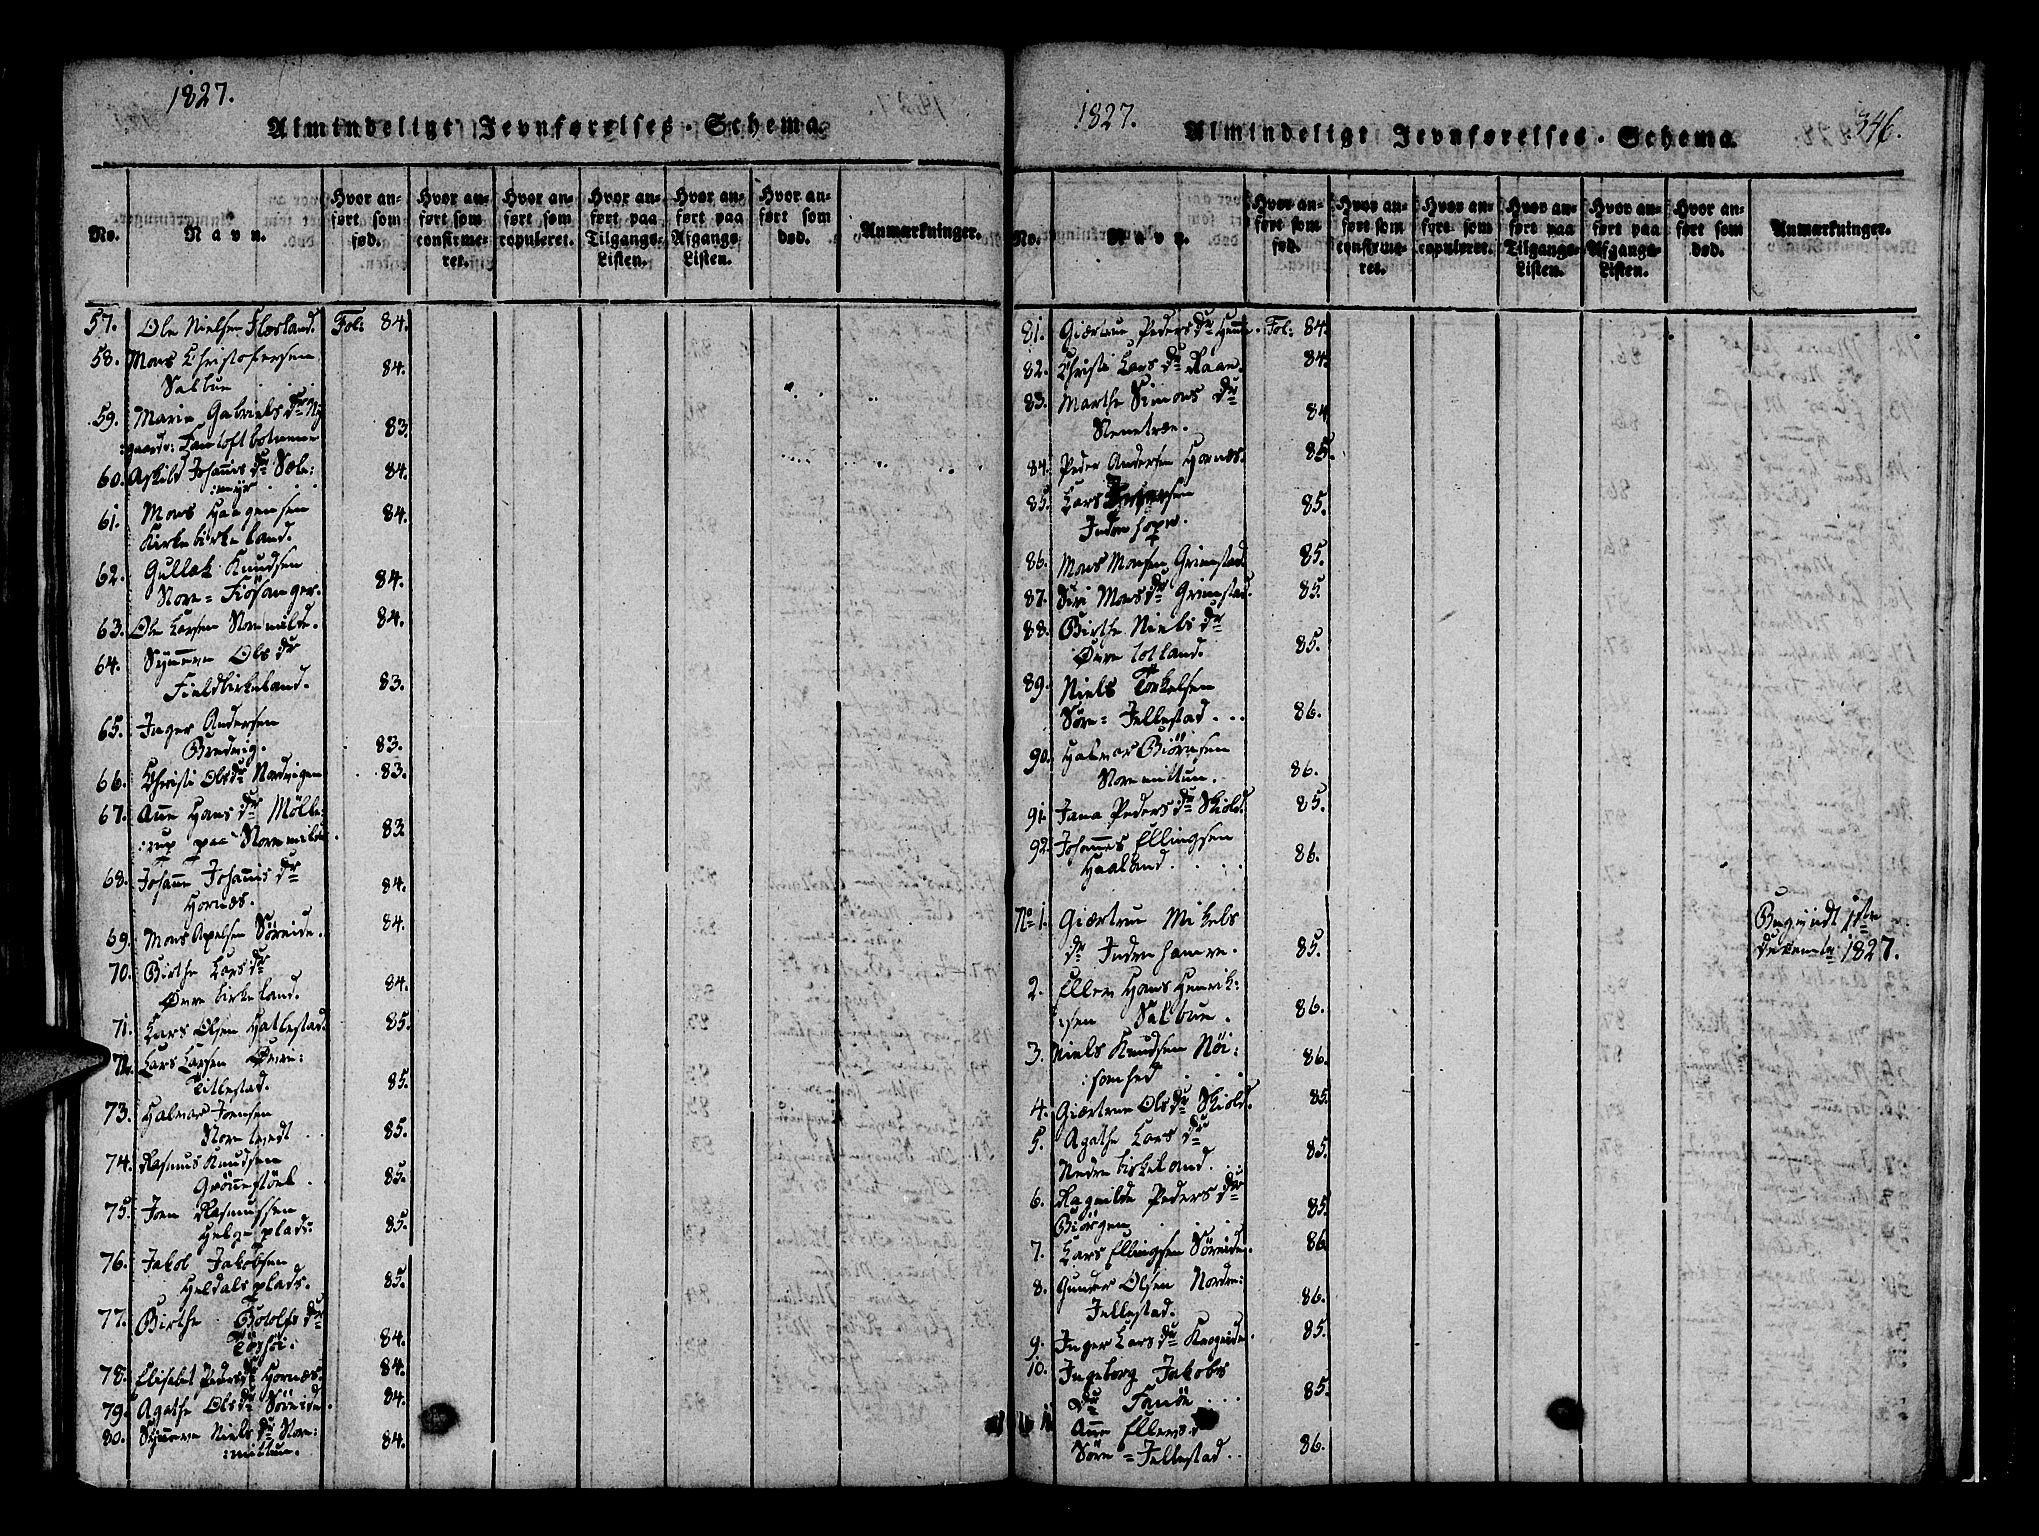 1827.
Almindeligt Jevnførelses-Schema.
No.
Navn.
Hvor anført som fød.
Hvor anført som confirmeret.
Hvor anført som copuleret.
Hvor anført paa Tilgangs-Listen.
Hvor anført paa Afgangs-Listen.
Hvor anført som død.
Anmærkninger.
57. Ole Nielsen Flesland. Fol: 84.
58. Mons Christophersen
Salbue 84.
59. Marie Gabriels Dr Ny
gaards: Fantoftbotnene 83.
60. Askild Johannes Dr Sæle:
:myr 84.
61. Mons Haagensen
Kirkebirkeland. 84.
62. Gullak Knudsen
Nore = Fiösanger. 84.
63. Ole Larsen Noremilde. 84.
64. Synneve Ols Dr
Fieldbirkeland. 83.
65. Inger Andersen
Bredvig. 83.
66. Christi Ols Dr Nordvigen 83.
67. Anne Hans Dr Mölle:
:rup paa Noremilde. 83.
68. Johanne Johannis Dr
Hornæs. 84.
69. Mons Apelsen Söreide. 84.
70. Birthe Lars Dr
Övrebirkeland. 84.
71. Lars Olsen Hatlestad. 85.
72. Lars Larsen Övre:
Titlestad. 85.
73. Halvor Joensen
Noretvedt 85.
74. Rasmus Knudsen
Grönnestöel. 85.
75. Joen Rasmussen
Helgeplads: 85.
76. Jakob Jakobsen
Heldalsplads. 85.
77. Birthe Botolfs Dr
84.
78. Elisabet Peders Dr Hornæs. 84.
79. Agathe Ols Dr Söreide. 84.
80. Synneve Niels Dr Nore:
:mittun. 84.
1827.
Almindeligt Jevnførelses-Schema.
346.
No.
Navn.
Hvor anført som fød.
Hvor anført som confirmeret.
Hvor anført som copuleret.
Hvor anført paa Tilgangs-Listen.
Hvor anført paa Afgangs-Listen.
Hvor anført som død.
Anmærkninger.
81. Giertrue Peders Dr Fol: 84.
82. Christi Lars Dr Raae. 84.
83. Marthe Simons Dr
Stenetræe. 84.
84. Peder Andersen Hornæs. 85.
85. Lars
Indrehope. 85.
86. Mons Monsen Grimstad. 85.
87. Siri Mons Dr Grimstad. 85.
88. Birthe Niels Dr
Övre lolland. 85.
89. Niels Torkelsen
Söre = Jellestad... 86.
90. Halvor Biörnsen
Noremittun. 86.
91. Jana Peders Dr Skiold. 85.
92. Johannes Ellingsen
Haaland. 86.
No 1. Giærtrue Mikels
Dr Indrehamre. 85. Begyndt 1ste
December 1827.
2. Ellen Hans Henrik:
:sen Salbue. 86.
3. Niels Knudsen Nöi:
:somhed 86.
4. Giærtrue Ols Dr Skiold. 85.
5. Agathe Lars Dr
Nedrebirkeland. 85.
6. Ragnilde Peders Dr
Biörgen 85.
7. Lars Ellingsen Söreide. 86.
8. Gunder Olsen Nordre:
Jellestad. 86.
9. Inger Lars Dr 85.
10. Ingeborg Jakobs
Dr 85.
Anne Ellers D
Söre = Jellestad.. 86.